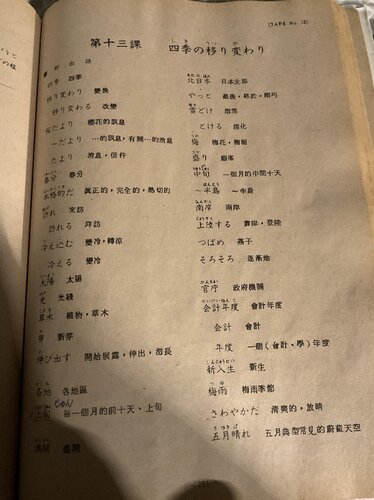 (TAPE No. 18)
第十三課 四季の移り変わり
新出語
四季 四季
移り変わり 變換
移り変わる 改變
桜だより 櫻花的訊息
ーだより …的訊息，有關…的消息
たより 消息，信件
春分 春分
本格的だ 真正的，完全的，熱切的
訪れ 來訪
訪れる 拜訪
冷え込む 變冷，轉涼
冷える 變冷
太陽 太陽
光 光綫
草木 植物，草木
芽 新芽
伸び出す 開始展露，伸出，滋長
各地 各地區
上旬 じゅん 每一個月的前十天、上旬
満開 盛開
北日本 日本北部
やっと 最後，終於，剛巧
雪どけ 溶雪
とける 溶化
梅 梅花，梅樹
盛り 巔峯
中旬 一個月的中間十天
～半島 ～半島
南岸 南岸
上陸する 靠岸，登陸
つばめ 燕子
そろそろ 逐漸地
官庁 政府機關
会計年度 會計年度
会計 會計
年度 一個（會計、學）年度
新入生 新生
梅雨 梅雨季節
さわやかだ 清爽的，放晴
五月晴れ 五月典型常見的蔚藍天空
251